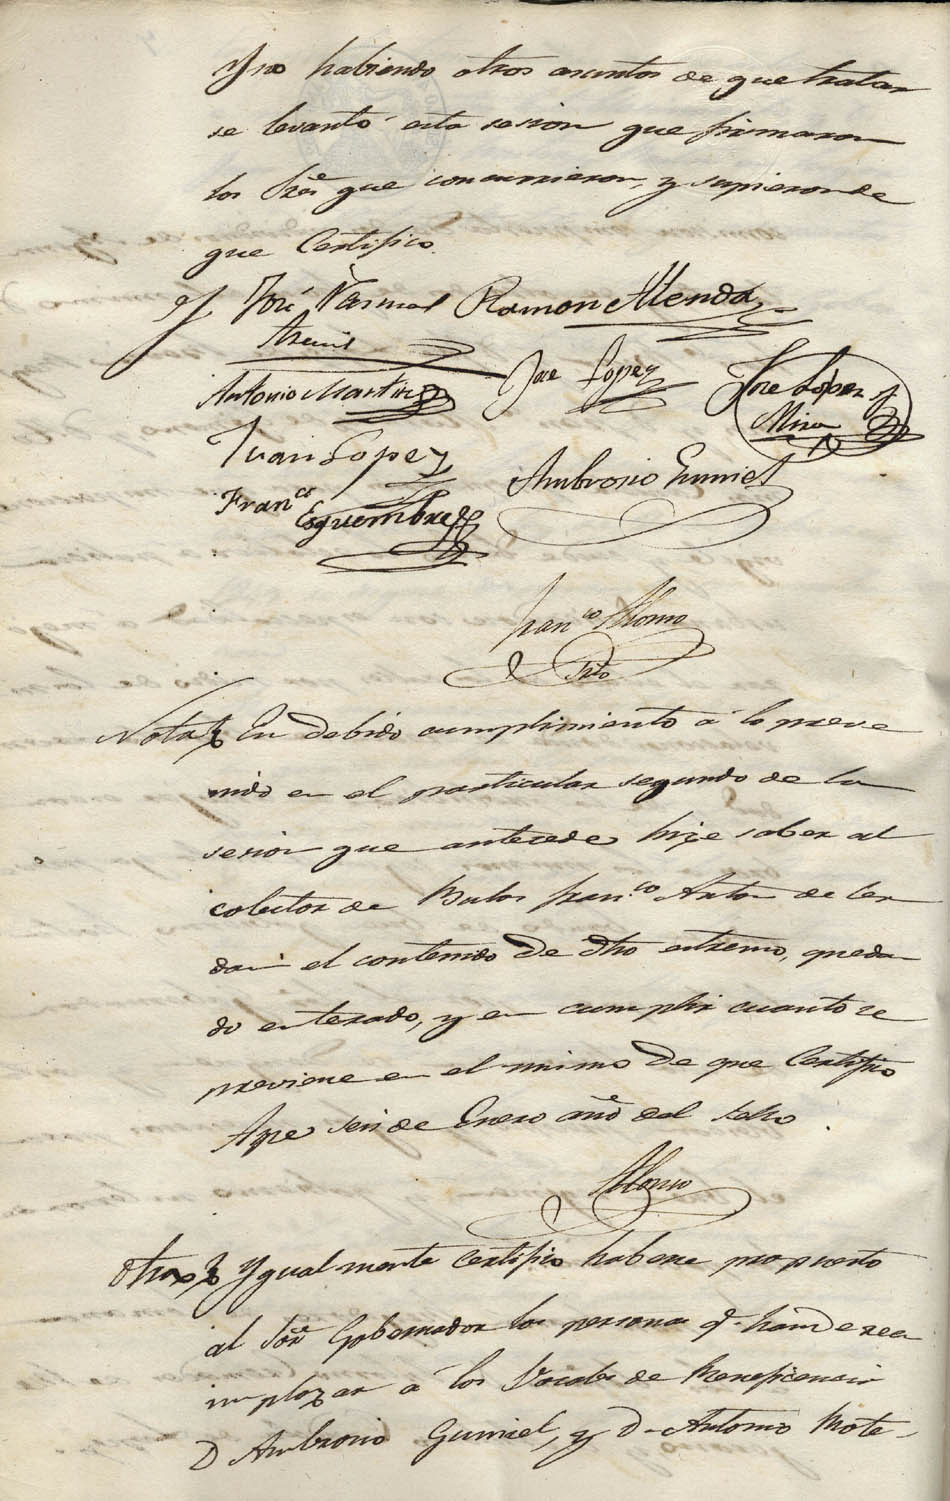 Y no habiendo otros asuntos de que tratar
se levantó esta sesion que firmaron
los Sres que concurrieron, y supieron de
que Certifico.
José Ramon Alenda
Antonio Martinez Jose Lopez Jose Lopez
Mira
Juan Lopez
Ambrosio Gumiel
Franco
Esquembre
Franco Alonso
Srio
Nota En debido cumplimiento á lo preve
nido en el particular segundo de la
sesion que antecede hize saber al
colector de Bulas Franco Anton de Cer
dan el contenido de dho estremo, queda
do enterado, y en cumplir cuanto se
previene en el mismo de que Certifico
Aspe seis de Enero año del sello
Alonso
Otra Ygualmente certifico haberse propuesto
al Sor Gobernador las personas q. han de reem
implazar á los Vocales de Beneficencia
D Ambrosio Gumiel, y D. Antonio Mote-